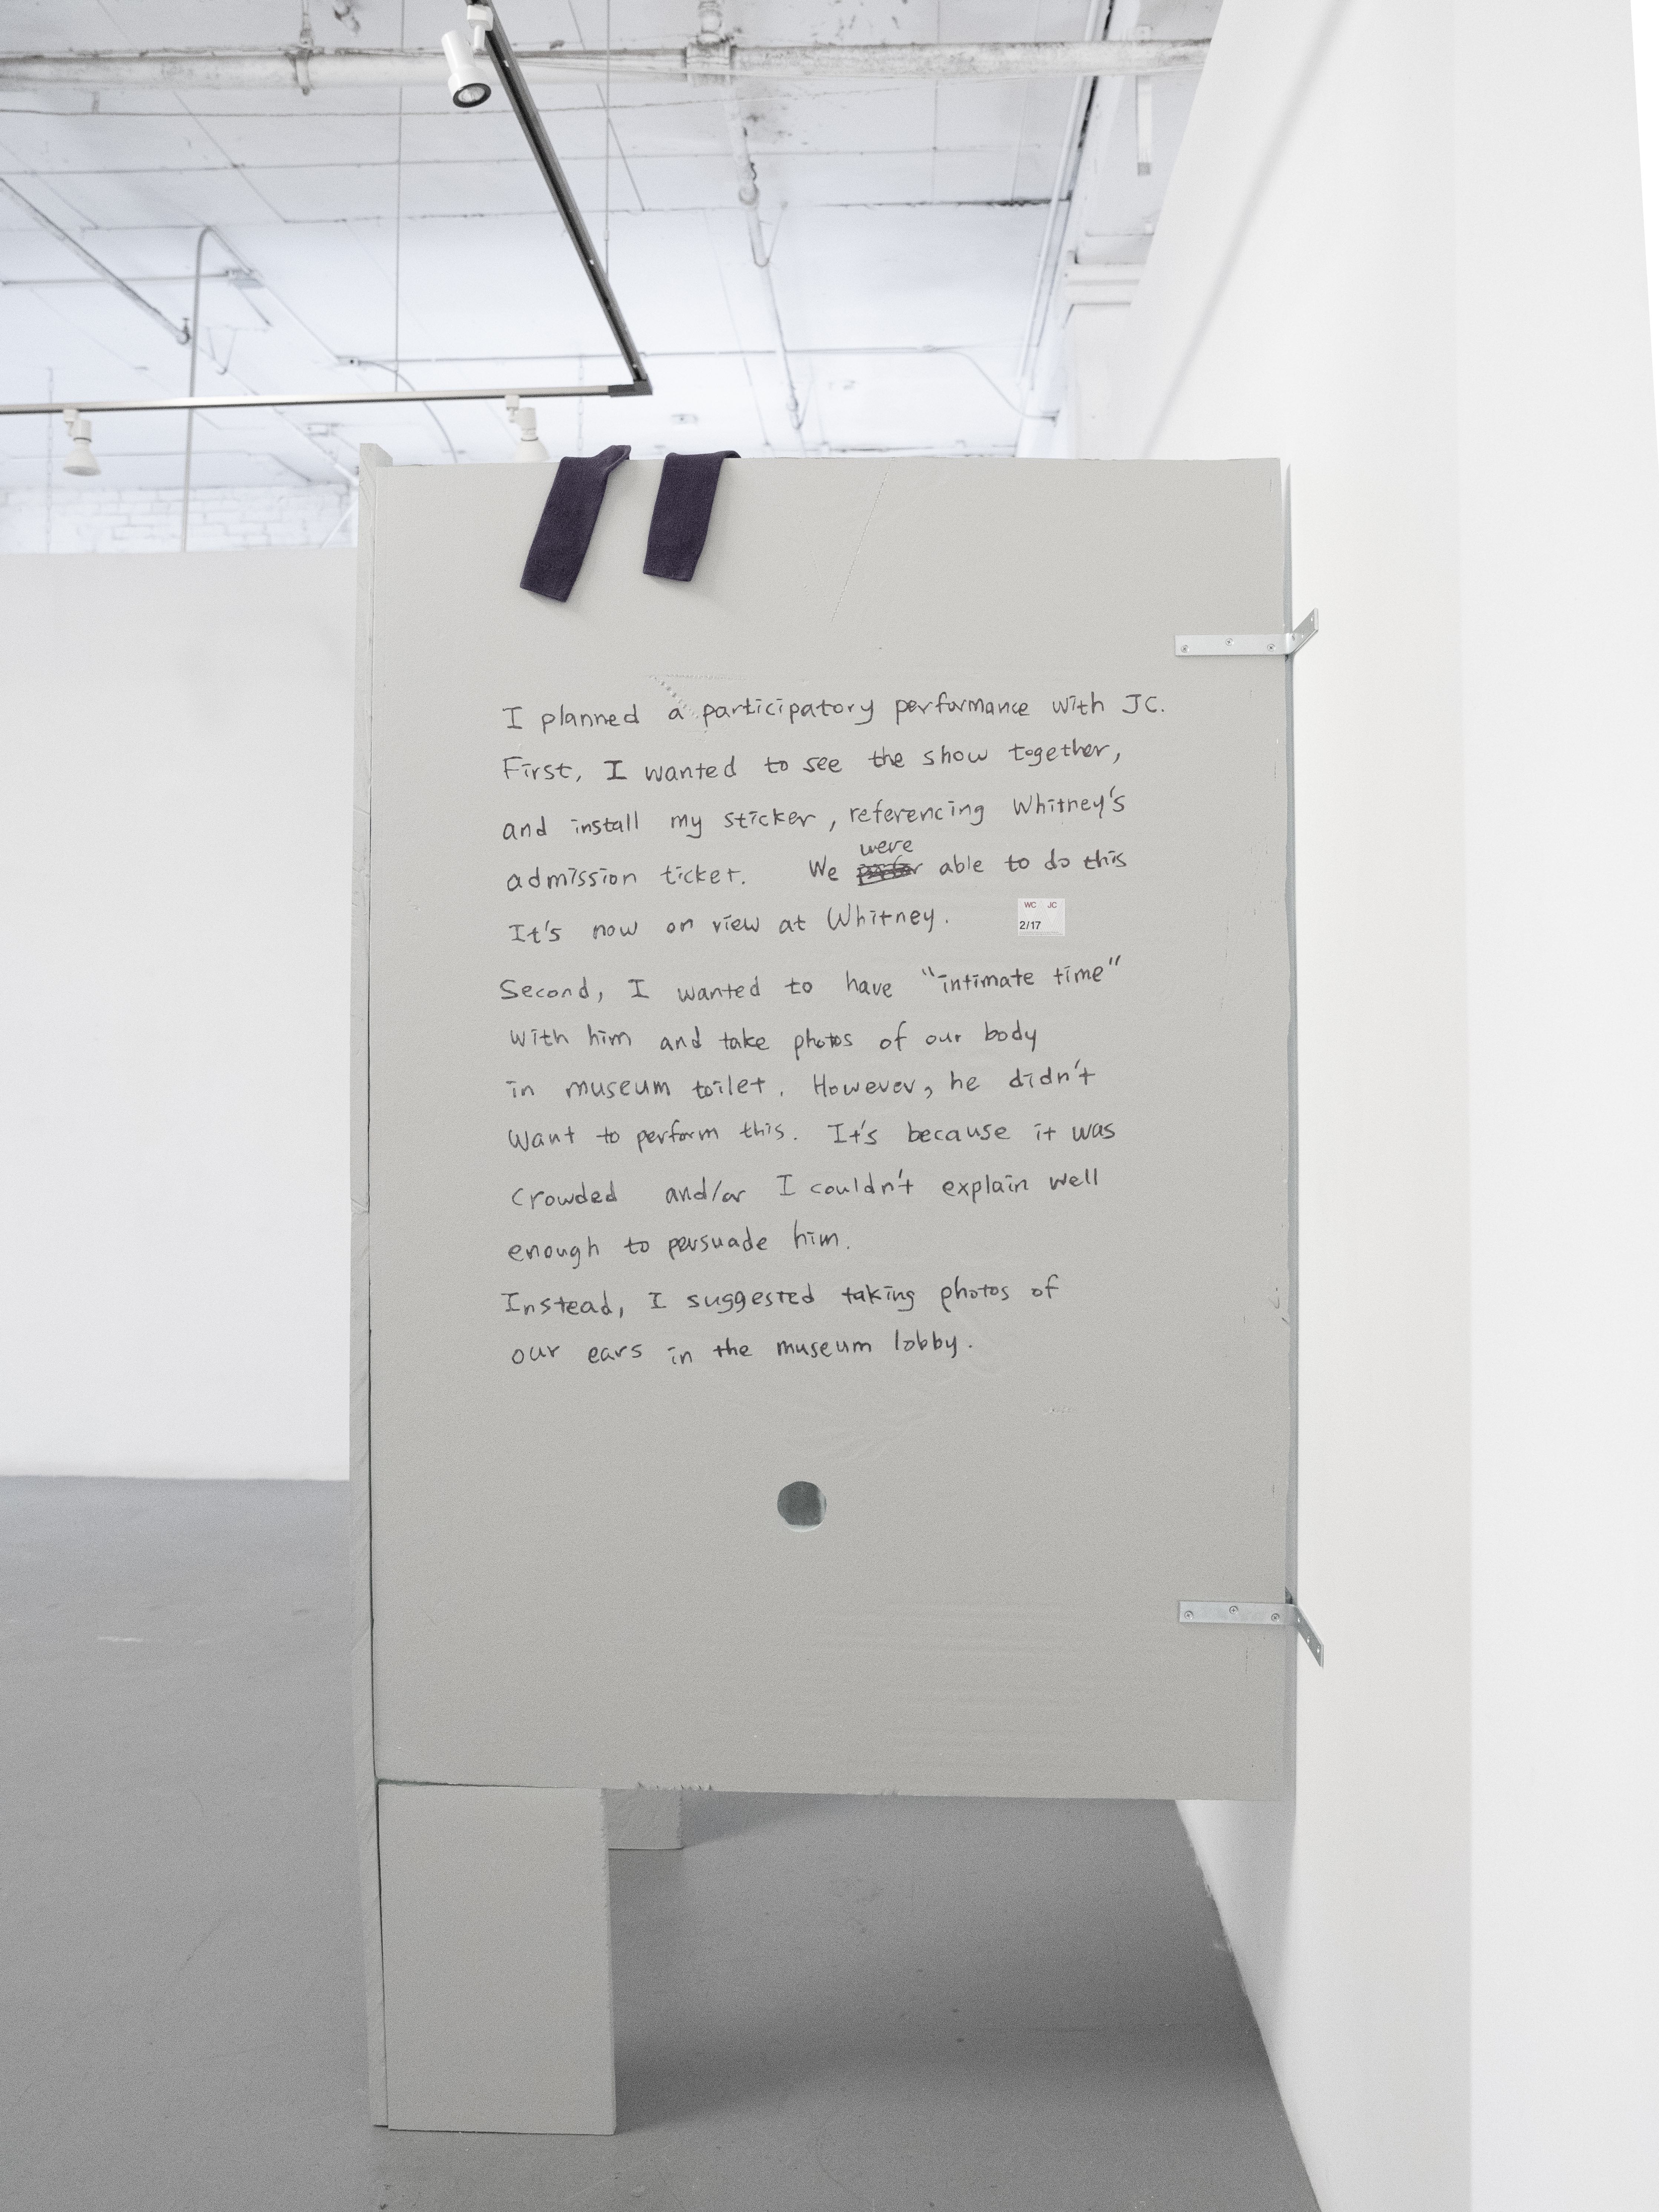 I planned a participatory performance with JC.
First, I wanted to see the show together,
and install my sticker, referencing Whitney's
admission ticket. We were able to do this
It's now on view at Whitney.
WC JC
2/17
Second, I wanted to have "intimate time"
with him and take photos of our body
in museum toilet. However, he didn't
want to perform this. It's because it was
crowded and/or I couldn't explain well
enough to persuade him.
Instead, I suggested taking photos of
our ears in the museum lobby.